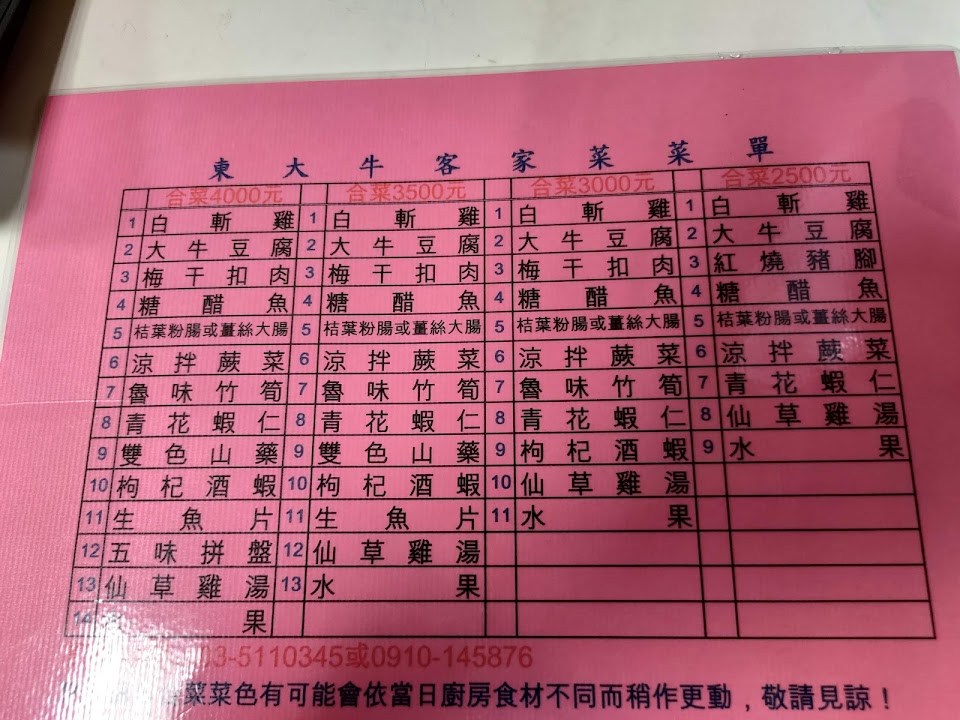 東大牛客家菜菜單
合菜4000元 合菜3500元 合菜3000元 合菜2500元
1 白斬雞 1 白斬雞 1 白斬雞 1 白斬雞
2 大牛豆腐 2 大牛豆腐 2 大牛豆腐 2 大牛豆腐
3 梅干扣肉 3 梅干扣肉 3 梅干扣肉 3 紅燒豬腳
4 糖醋魚 4 糖醋魚 4 糖醋魚 4 糖醋魚
5 桔葉粉腸或薑絲大腸 5 桔葉粉腸或薑絲大腸 5 桔葉粉腸或薑絲大腸 5 桔葉粉腸或薑絲大腸
6 涼拌蕨菜 6 涼拌蕨菜 6 涼拌蕨菜 6 涼拌蕨菜
7 魯味竹筍 7 魯味竹筍 7 魯味竹筍 7 青花蝦仁
8 青花蝦仁 8 青花蝦仁 8 青花蝦仁 8 仙草雞湯
9 雙色山藥 9 雙色山藥 9 枸杞酒蝦 9 水果
10 枸杞酒蝦 10 枸杞酒蝦 10 仙草雞湯
11 生魚片 11 生魚片 11 水果
12 五味拼盤 12 仙草雞湯
13 仙草雞湯 13 水果
14 果
03-5110345或0910-145876
菜菜色有可能會依當日廚房食材不同而稍作更動，敬請見諒！